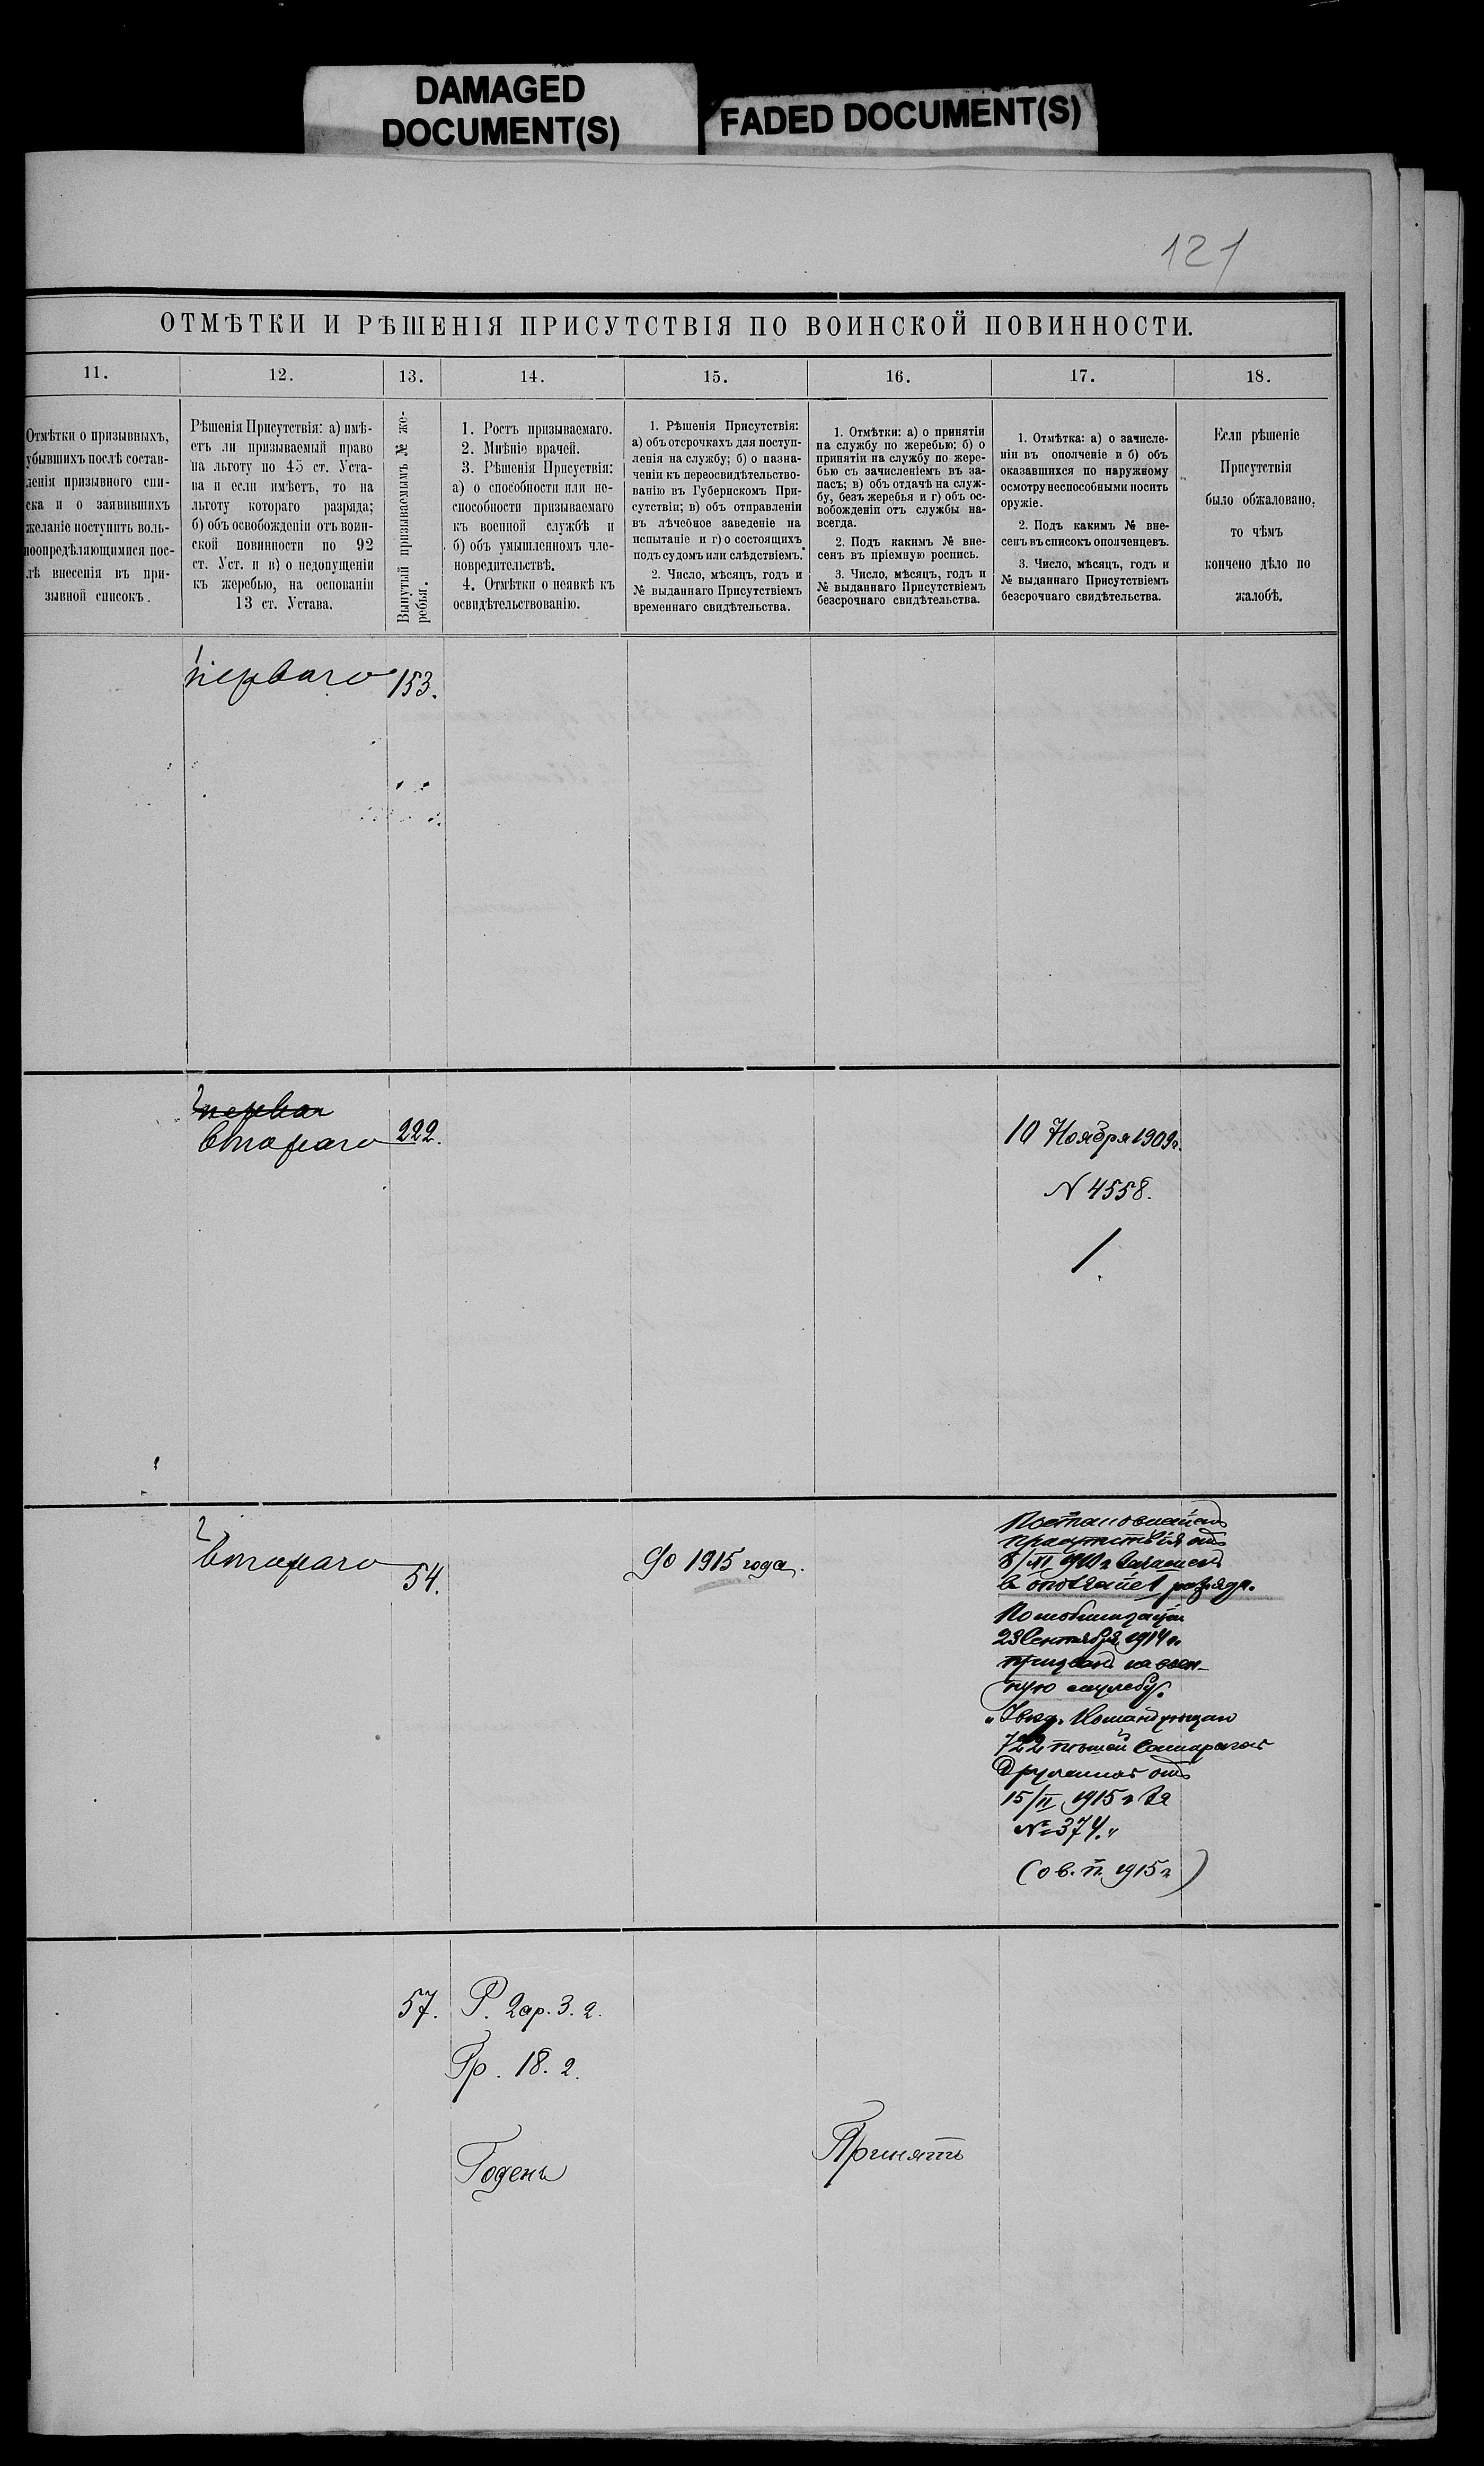 DAMAGED
DOCUMENT(S)
FADED DOCUMENT(S)
121
ОТМѢТКИ И РѢШЕНІЯ ПРИСУТСТВІЯ ПО ВОИНСКОЙ ПОВИННОСТИ.
11.
12.
13.
14.
15.
16.
17.
18.
Отмѣтки о призывныхъ,
убывшихъ послѣ состав-
ленія призывного спи-
ска и о заявившихъ
желаніе поступить воль-
ноопредѣляющимися пос-
лѣ внесенія въ при-
зывной списокъ.
Рѣшенія Присутствія: а) имѣ-
етъ ли призываемый право
на льготу по 45 ст. Уста-
ва и если имѣетъ, то на
льготу котораго разряда;
б) объ освобожденіи отъ воин-
ской повинности по 92
ст. Уст. и в) о недопущеніи
къ жеребью, на основаніи
13 ст. Устава.
Вынутый призываемымъ № же-
ребья.
1. Ростъ призываемаго.
2. Мнѣніе врачей.
3. Рѣшенія Присуствія:
а) о способности или не-
способности призываемаго
къ военной службѣ и
б) объ умышленномъ чле-
новредительствѣ.
4. Отмѣтки о неявкѣ къ
освидѣтельствованію.
1. Рѣшенія Присутствія:
а) объ отсрочкахъ для поступ-
ленія на службу; б) о назна-
ченіи къ переосвидѣтельство-
ванію въ Губернскомъ При-
сутствіи; в) объ отправленіи
въ лѣчебное заведеніе на
испытаніе и г) о состоящихъ
подъ судомъ или слѣдствіемъ.
2. Число, мѣсяцъ, годъ и
№ выданнаго Присутствіемъ
временнаго свидѣтельства.
1. Отмѣтки: а) о принятіи
на службу по жеребью; б) о
принятіи на службу по жере-
бью съ зачисленіемъ въ за-
пасъ; в) объ отдачѣ на служ-
бу, безъ жеребья и г) объ ос-
вобожденіи отъ службы на-
всегда.
2. Подъ какимъ № вне-
сенъ въ пріемную роспись.
3. Число, мѣсяцъ, годъ и
№ выданнаго Присутствіемъ
безсрочнаго свидѣтельства.
1. Отмѣтка: а) о зачисле-
ніи въ ополченіе и б) объ
оказавшихся по наружному
осмотру неспособными носить
оружіе.
2. Подъ какимъ № вне-
сенъ въ списокъ ополченцевъ.
3. Число, мѣсяцъ, годъ и
№ выданнаго Присутствіемъ
безсрочнаго свидѣтельства.
Если рѣшеніе
Присутствія
было обжаловано,
то чѣмъ
кончено дѣло по
жалобѣ.
1
перваго 153.
2
перваг
втораго 222.
10 Ноября 1909г.
N 4558.
2
втораго 54.
До 1915 года.
присутствія отъ
в ополченіе 1 разряда.
По мобилизаціи
23 Сентября 1914 г.
призванъ на воен-
ную службу.
"Увед. Командующаго
722 пѣшей
Дружиной отъ
15/II 1915 г за
№ 374."
(о в. п. 1915 г)
57. Р. 2ар. 3. 2.
Гр. 18. 2.
Годенъ
Принять